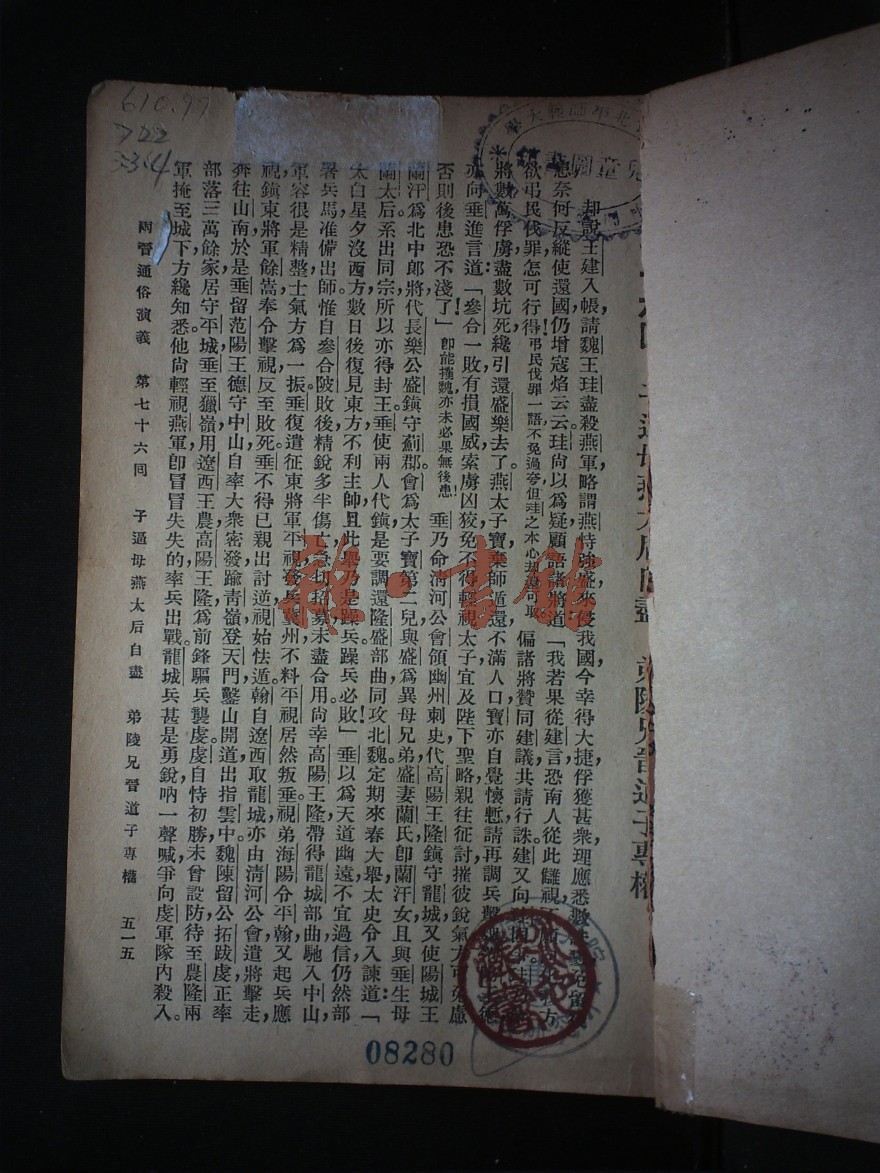 610.99
722
334
子逼母燕太后自盡 弟陵兄晉道子專權
却說王建入帳請魏王珪盡殺燕軍略謂燕恃強盛來侵我國今幸得大捷俘獲甚衆理應悉數
患奈何反縱使還國仍增寇焰云云珪尚以爲疑顧語諸將道「我若果從建言恐南人從此讎視不
欲弔民伐罪怎可行得!弔民伐罪一語不免過夸但珪之本心却 偏諸將贊同建議共請行誅建又向珪
將數萬俘虜盡數坑死纔引還盛樂去了。燕太子寶棄師遁還不滿人口寶亦自覺懷慙請再調兵擊魏
亦向垂進言道:「參合一敗有損國威索虜凶狡免不得輕視太子宜及陛下聖略親往征討摧彼銳氣方可免慮
否則後患恐不淺了!」卽能摧魏亦未必果無後患!垂乃命淸河公會領幽州刺史代高陽王隆鎭守龍城又使陽城王
蘭汗爲北中郎將代長樂公盛鎭守薊郡會爲太子寶第二兒與盛爲異母兄弟盛妻蘭氏卽蘭汗女且與垂生母
蘭太后系出同宗所以亦得封王垂使兩人代鎭是要調還隆盛部曲同攻北魏定期來春大舉太史令入諫道:「
太白星夕沒西方數日後復見東方不利主帥且此舉乃是躁兵躁兵必敗!」垂以爲天道幽遠不宜過信仍然部
署兵馬准備出師惟自參合陂敗後精銳多半傷亡急切招募未盡合用尚幸高陽王隆帶得龍城部曲馳入中山
軍容很是精整士氣方爲一振垂復遣征東將軍平視發兵冀州不料平視居然叛垂視弟海陽令平翰又起兵應
視鎭東將軍餘嵩奉令擊視反至敗死垂不得已親出討逆視始怯遁翰自遼西取龍城亦由淸河公會遣將擊走
奔往山南於是垂留范陽王德守中山自率大衆密發踰靑嶺登天門鑿山開道出指雲中魏陳留公拓跋虔正率
部落三萬餘家居守平城垂至獵嶺用遼西王農高陽王隆爲前鋒驅兵襲虔虔自恃初勝未曾設防待至農隆兩
軍掩至城下方纔知悉他尚輕視燕軍卽冒冒失失的率兵出戰龍城兵甚是勇銳吶一聲喊爭向虔軍隊內殺入。
兩晉通俗演義 第七十六回 子逼母燕太后自盡 弟陵兄晉道子專權 五一五
08280
雅·書館